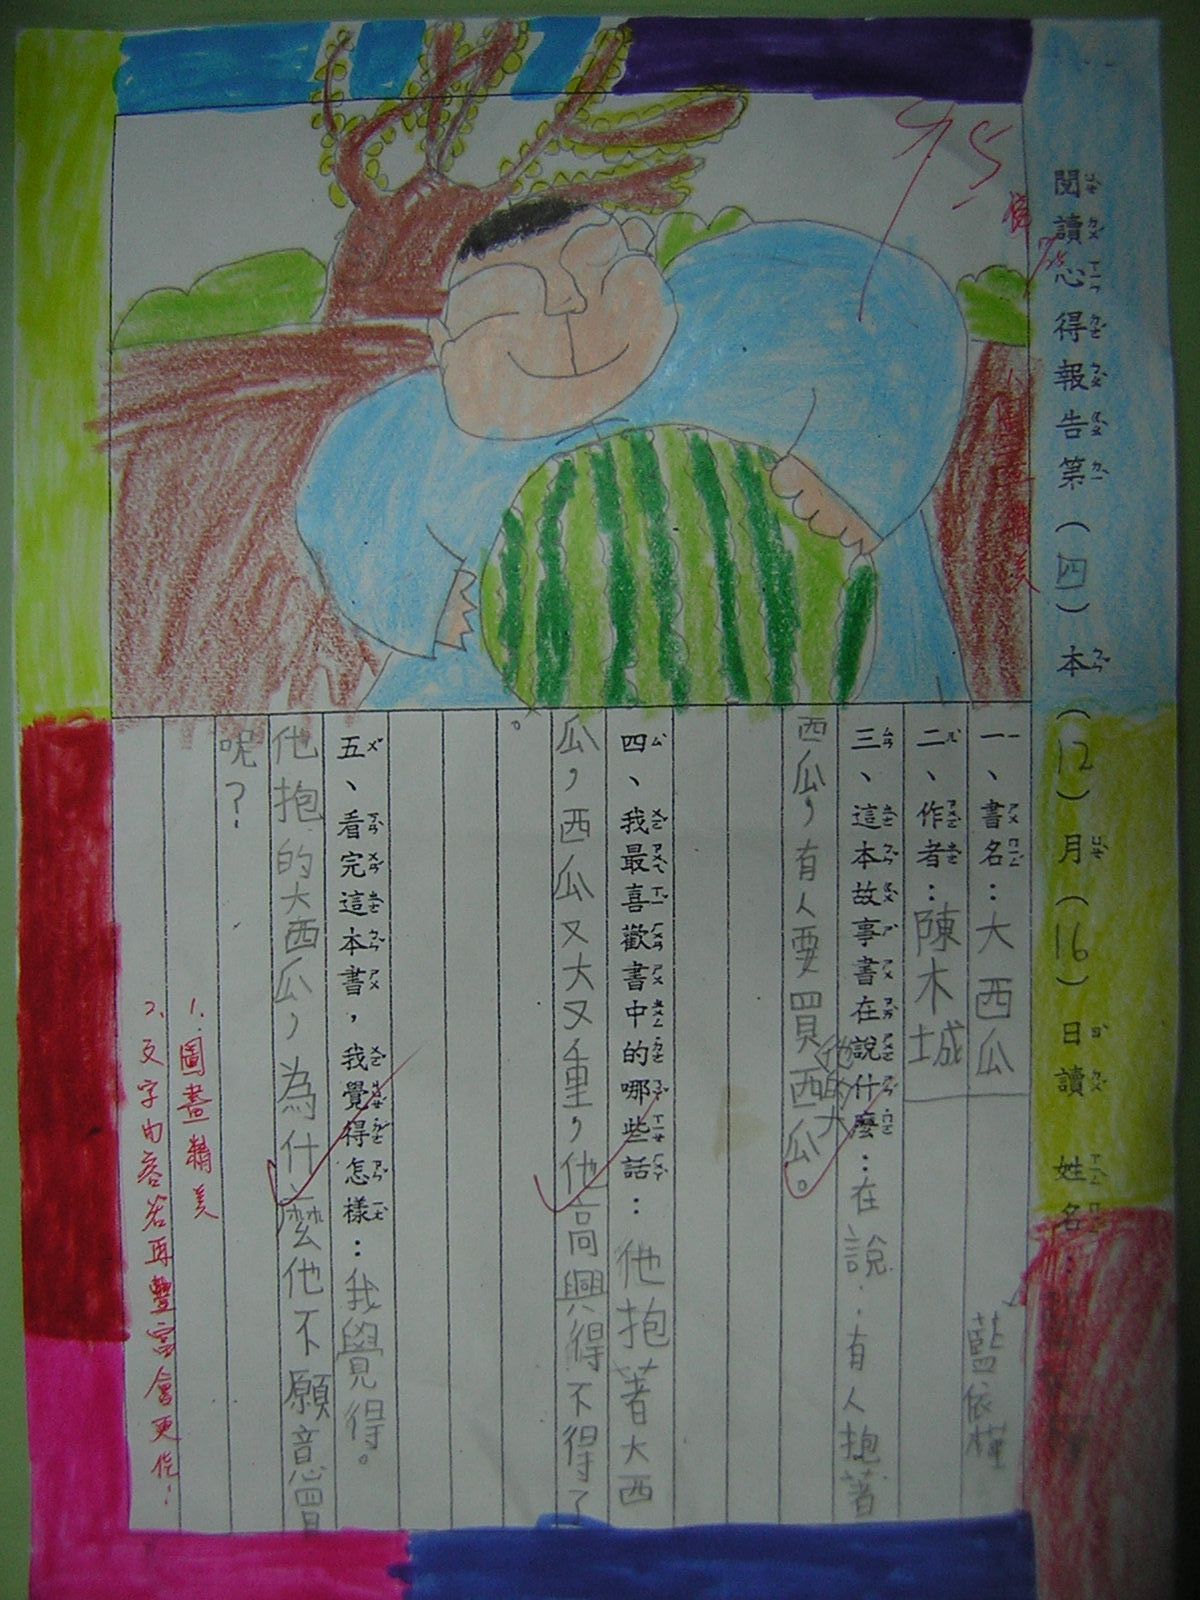 閱讀心得報告第(四)本(12)月(16)日讀 姓名:
藍依
95
一、書名:大西瓜
二、作者:陳木城
三、這本故事書在說什麼:在說:有人抱著
他的大
西瓜,有人要買西瓜。
四、我最喜歡書中的哪些話:他抱著大西
瓜,西瓜又大又重,他高興得不得了
。
五、看完這本書,我覺得怎樣:我覺得。
他抱的大西瓜,為什麼他不願意買
呢?
1.圖畫精美
2.文字內容若再豐富會更佳!